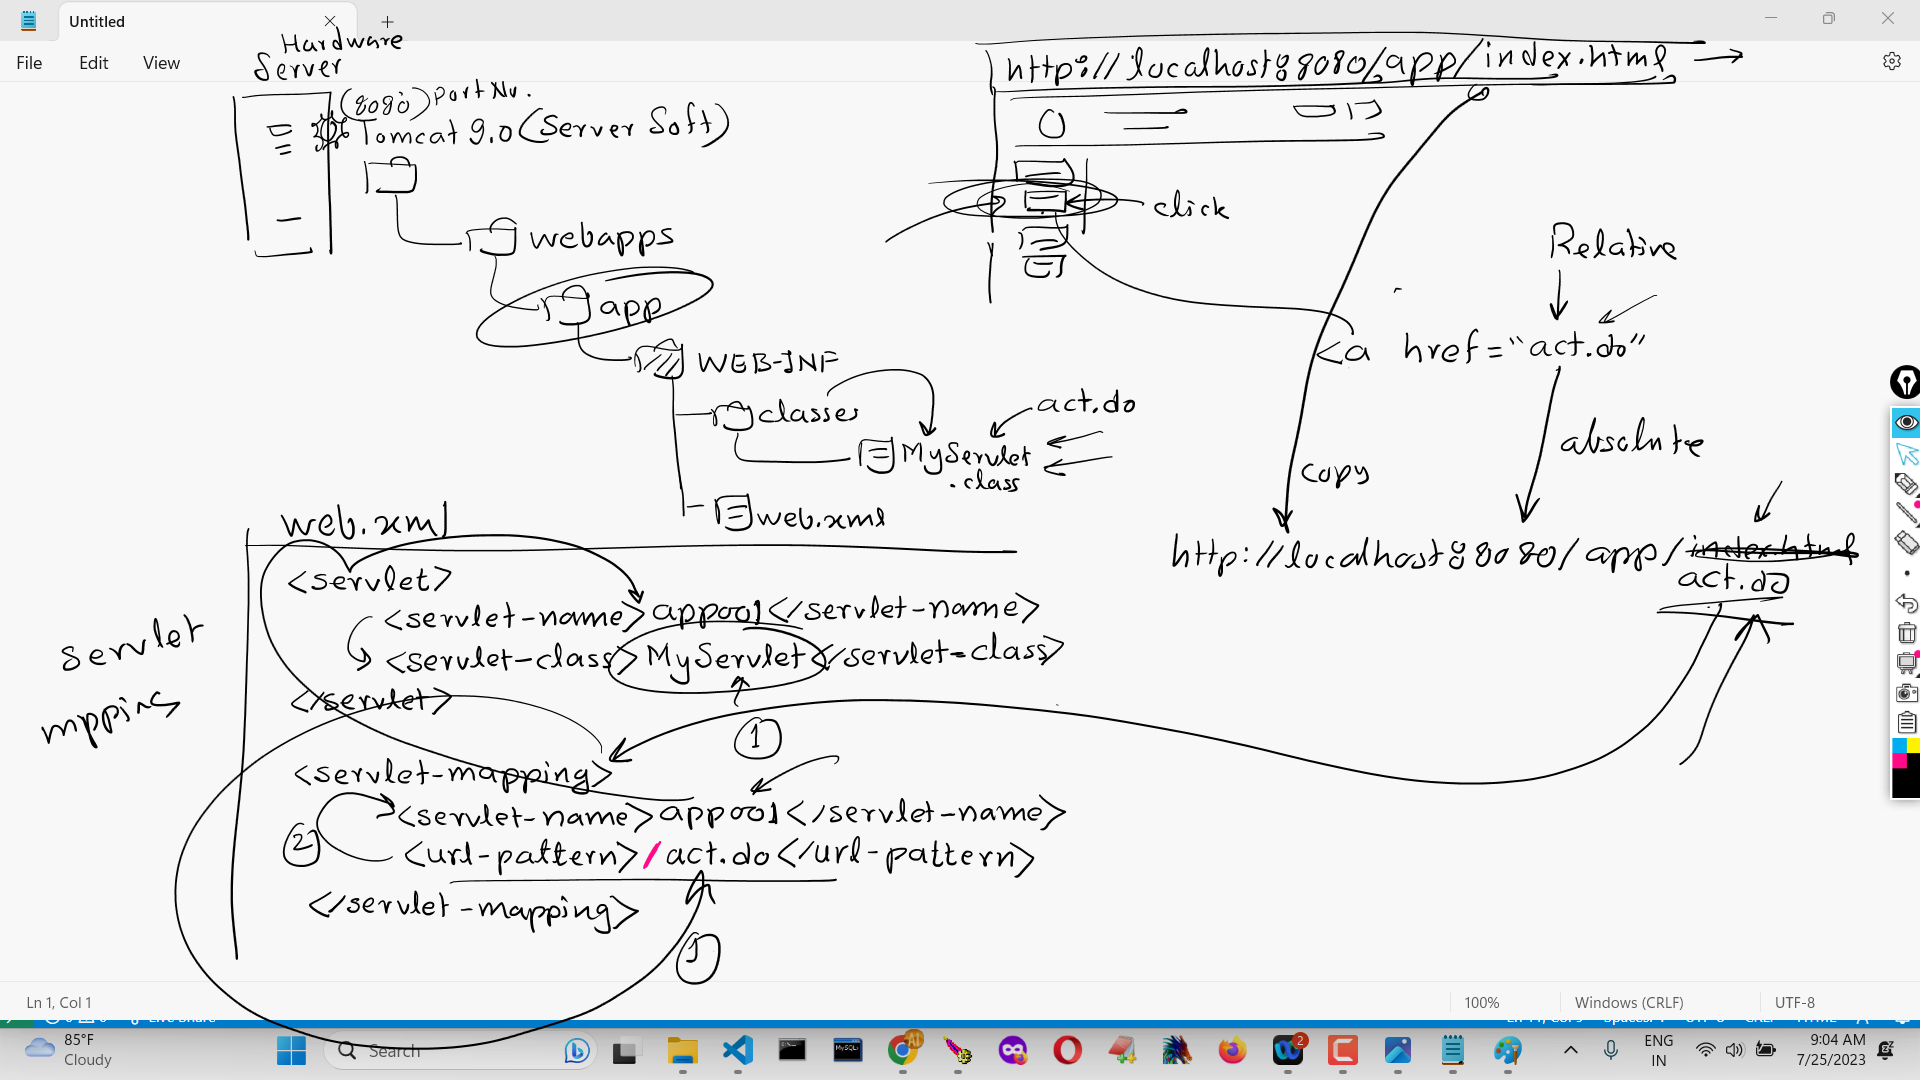 Untitled
File Edit View
Hardware
Server
(8080) Port No.
Tomcat 9.0 (Server Soft)
webapps
app
WEB-INF
classes
act.do
MyServlet
.class
web.xml
http://localhost:8080/app/index.html
click
Relative
<a href="act.do"
absolute
copy
http://localhost:8080/app/index.html
act.do
web.xml
servlet
mpping
<servlet>
<servlet-name>app001</servlet-name>
<servlet-class>MyServlet</servlet-class>
</servlet>
1
<servlet-mapping>
<servlet-name>app001</servlet-name>
2
<url-pattern>/act.do</url-pattern>
</servlet-mapping>
Ln 1, Col 1
100%
Windows (CRLF)
UTF-8
85°F
Cloudy
Search
2
ENG
IN
9:04 AM
7/25/2023